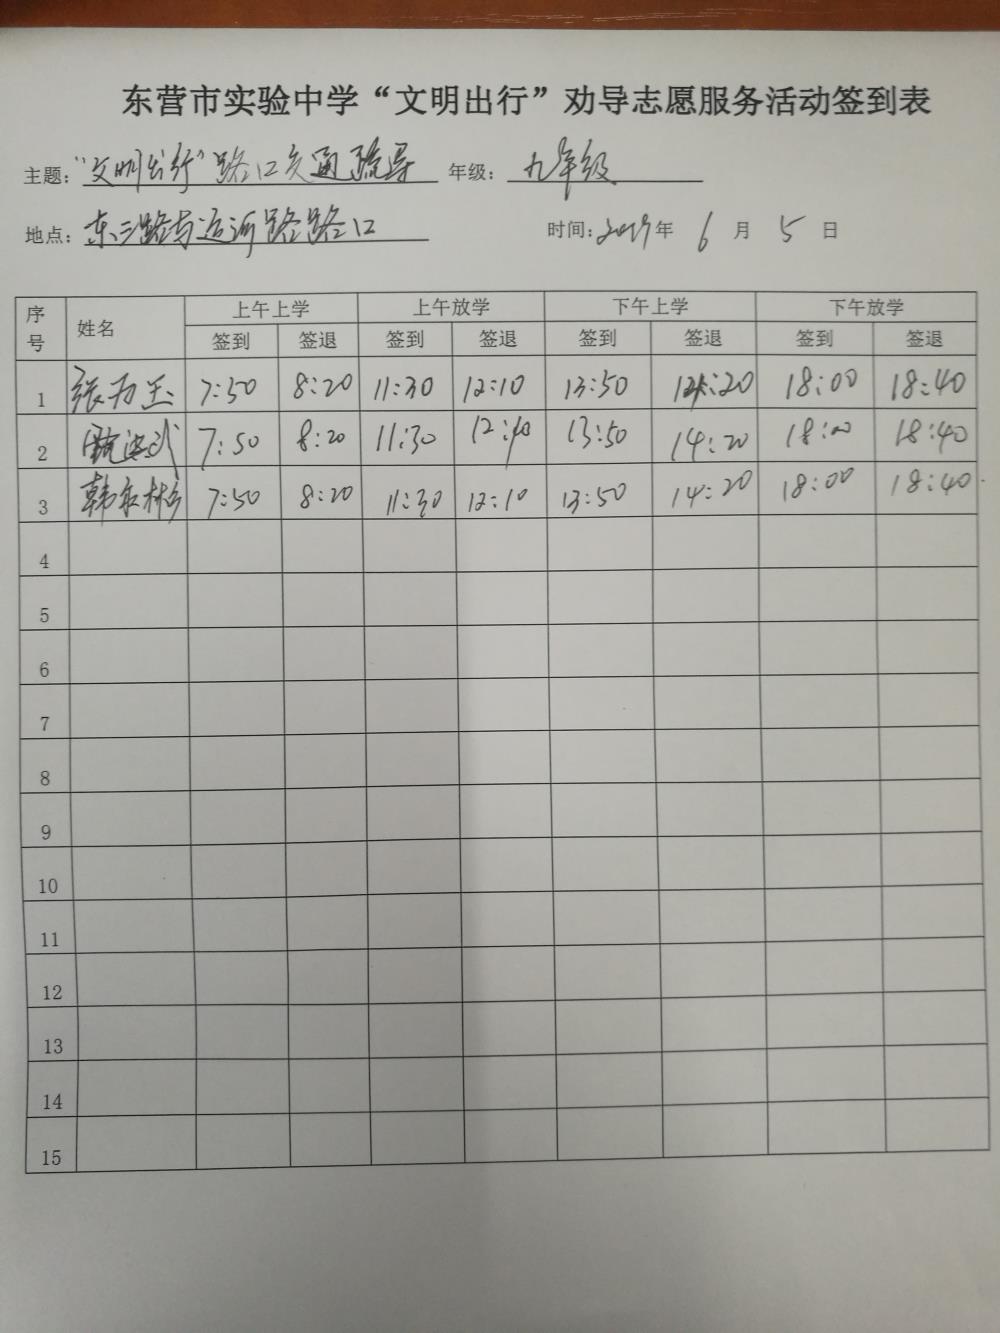 东营市实验中学“文明出行”劝导志愿服务活动签到表
主题：“文明出行”路口交通疏导 年级：九年级
地点：东三路与运河路路口 时间：2019年 6 月 5 日
序号 姓名 上午上学 上午放学 下午上学 下午放学
签到 签退 签到 签退 签到 签退 签到 签退
1 张 7:50 8:20 11:30 12:10 13:50 14:20 18:00 18:40
2 7:50 8:20 11:30 12:10 13:50 14:20 18:00 18:40
3 韩 7:50 8:20 11:30 12:10 13:50 14:20 18:00 18:40
4
5
6
7
8
9
10
11
12
13
14
15